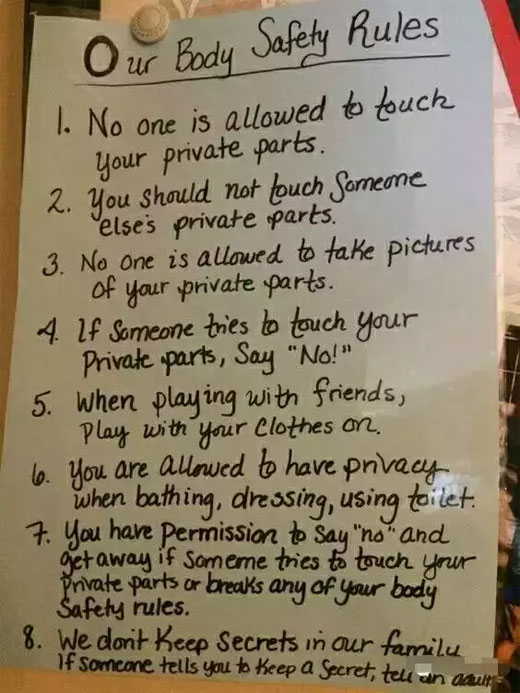 Our Body Safety Rules
1. No one is allowed to touch
your private parts.
2. You should not touch Someone
else's private parts.
3. No one is allowed to take pictures
of your private parts.
4. If Someone tries to touch your
Private parts, Say "No!"
5. When playing with friends,
Play with your Clothes on.
6. You are allowed to have privacy
when bathing, dressing, using toilet.
7. You have Permission to Say "no" and
get away if Someone tries to touch your
Private parts or breaks any of your body
Safety rules.
8. We don't Keep Secrets in our family
If Someone tells you to Keep a Secret, tell an adult